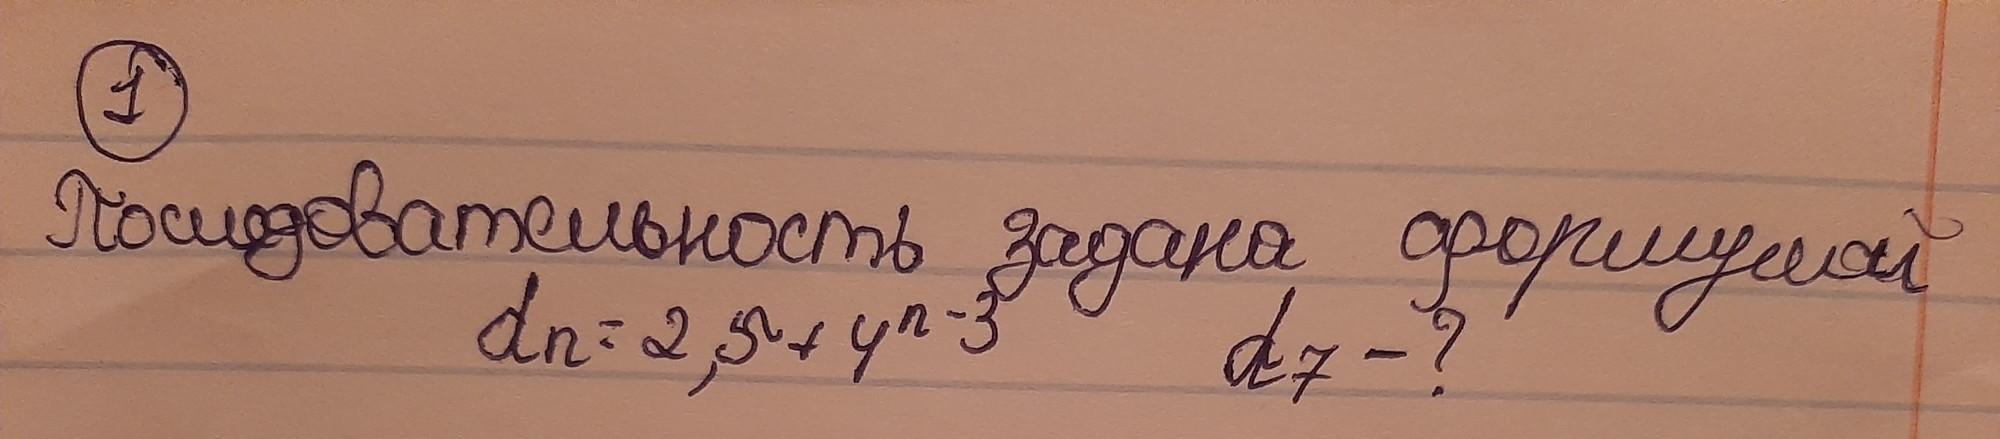 1
Последовательность задана формулой
dn = 2,5 + 4ⁿ⁻³ d7 - ?